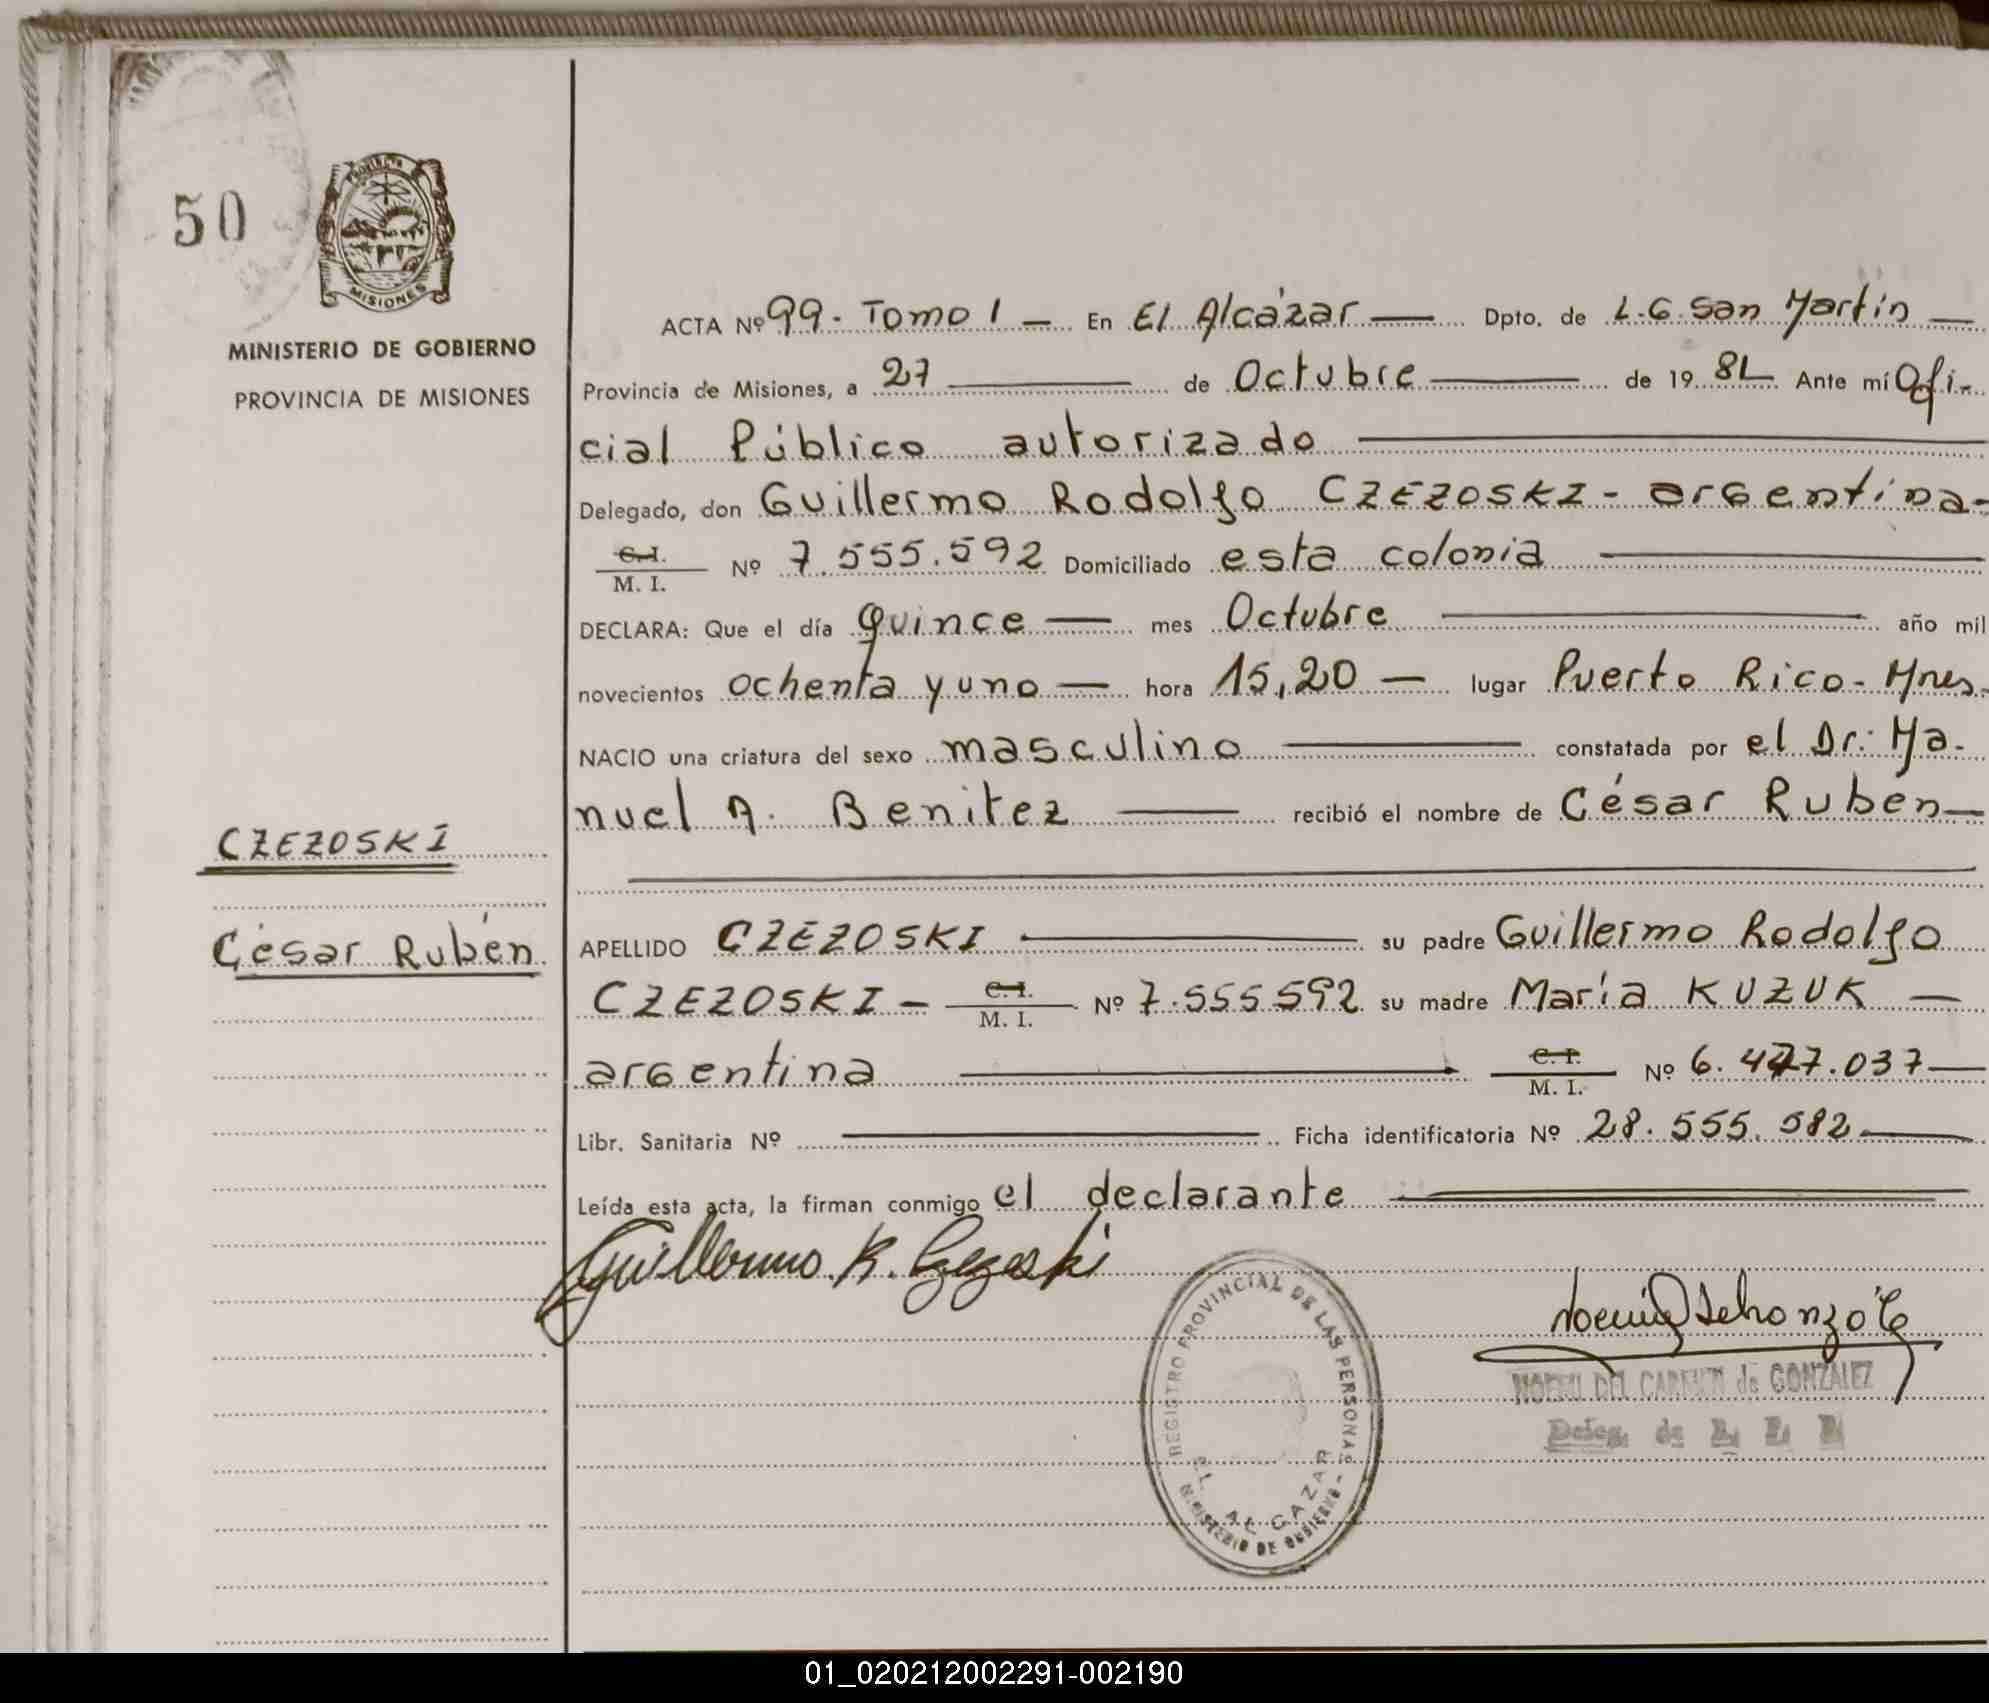 50
PROTECTO
MISIONES
MINISTERIO DE GOBIERNO
PROVINCIA DE MISIONES
ACTA Nº 99. Tomo I — En El Alcázar — Dpto. de L.G. San Martín —
Provincia de Misiones, a 27 — de Octubre — de 19 81 Ante mí Ofi-
cial Público autorizado
Delegado, don Guillermo Rodolfo CZEZOSKI - argentina-
C.I.
M. I. Nº 7.555.592 Domiciliado esta colonia
DECLARA: Que el día quince — mes Octubre — año mil
novecientos ochenta y uno — hora 15,20 — lugar Puerto Rico - Mnes.
NACIO una criatura del sexo masculino — constatada por el Dr: Ma-
nuel A. Benitez — recibió el nombre de César Ruben—
CZEZOSKI
César Rubén
APELLIDO CZEZOSKI — su padre Guillermo Rodolfo
CZEZOSKI — C.I.
M. I. Nº 7.555.592 su madre María KUZUK —
argentina — C.I.
M. I. Nº 6.477.037—
Libr. Sanitaria Nº — Ficha identificatoria Nº 28.555.582—
Leída esta acta, la firman conmigo el declarante
Guillermo R. Czezoski
REGISTRO PROVINCIAL DE LAS PERSONAS
EL ALCAZAR
MINISTERIO DE GOBIERNO -
NOEMI DEL CARMEN de GONZALEZ
Deleg. de
01_020212002291-002190